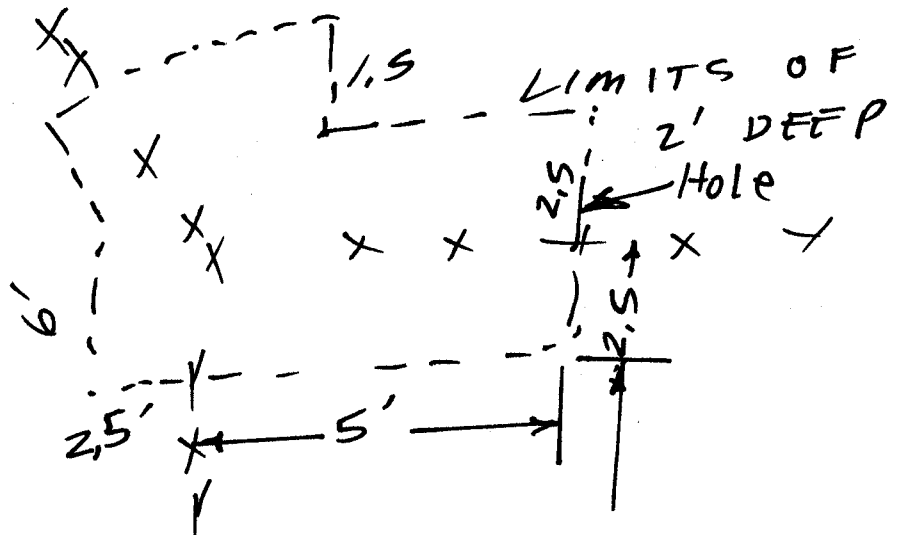 1.5
LIMITS OF
2' DEEP
Hole
2,5
2,5
6'
2,5'
5'